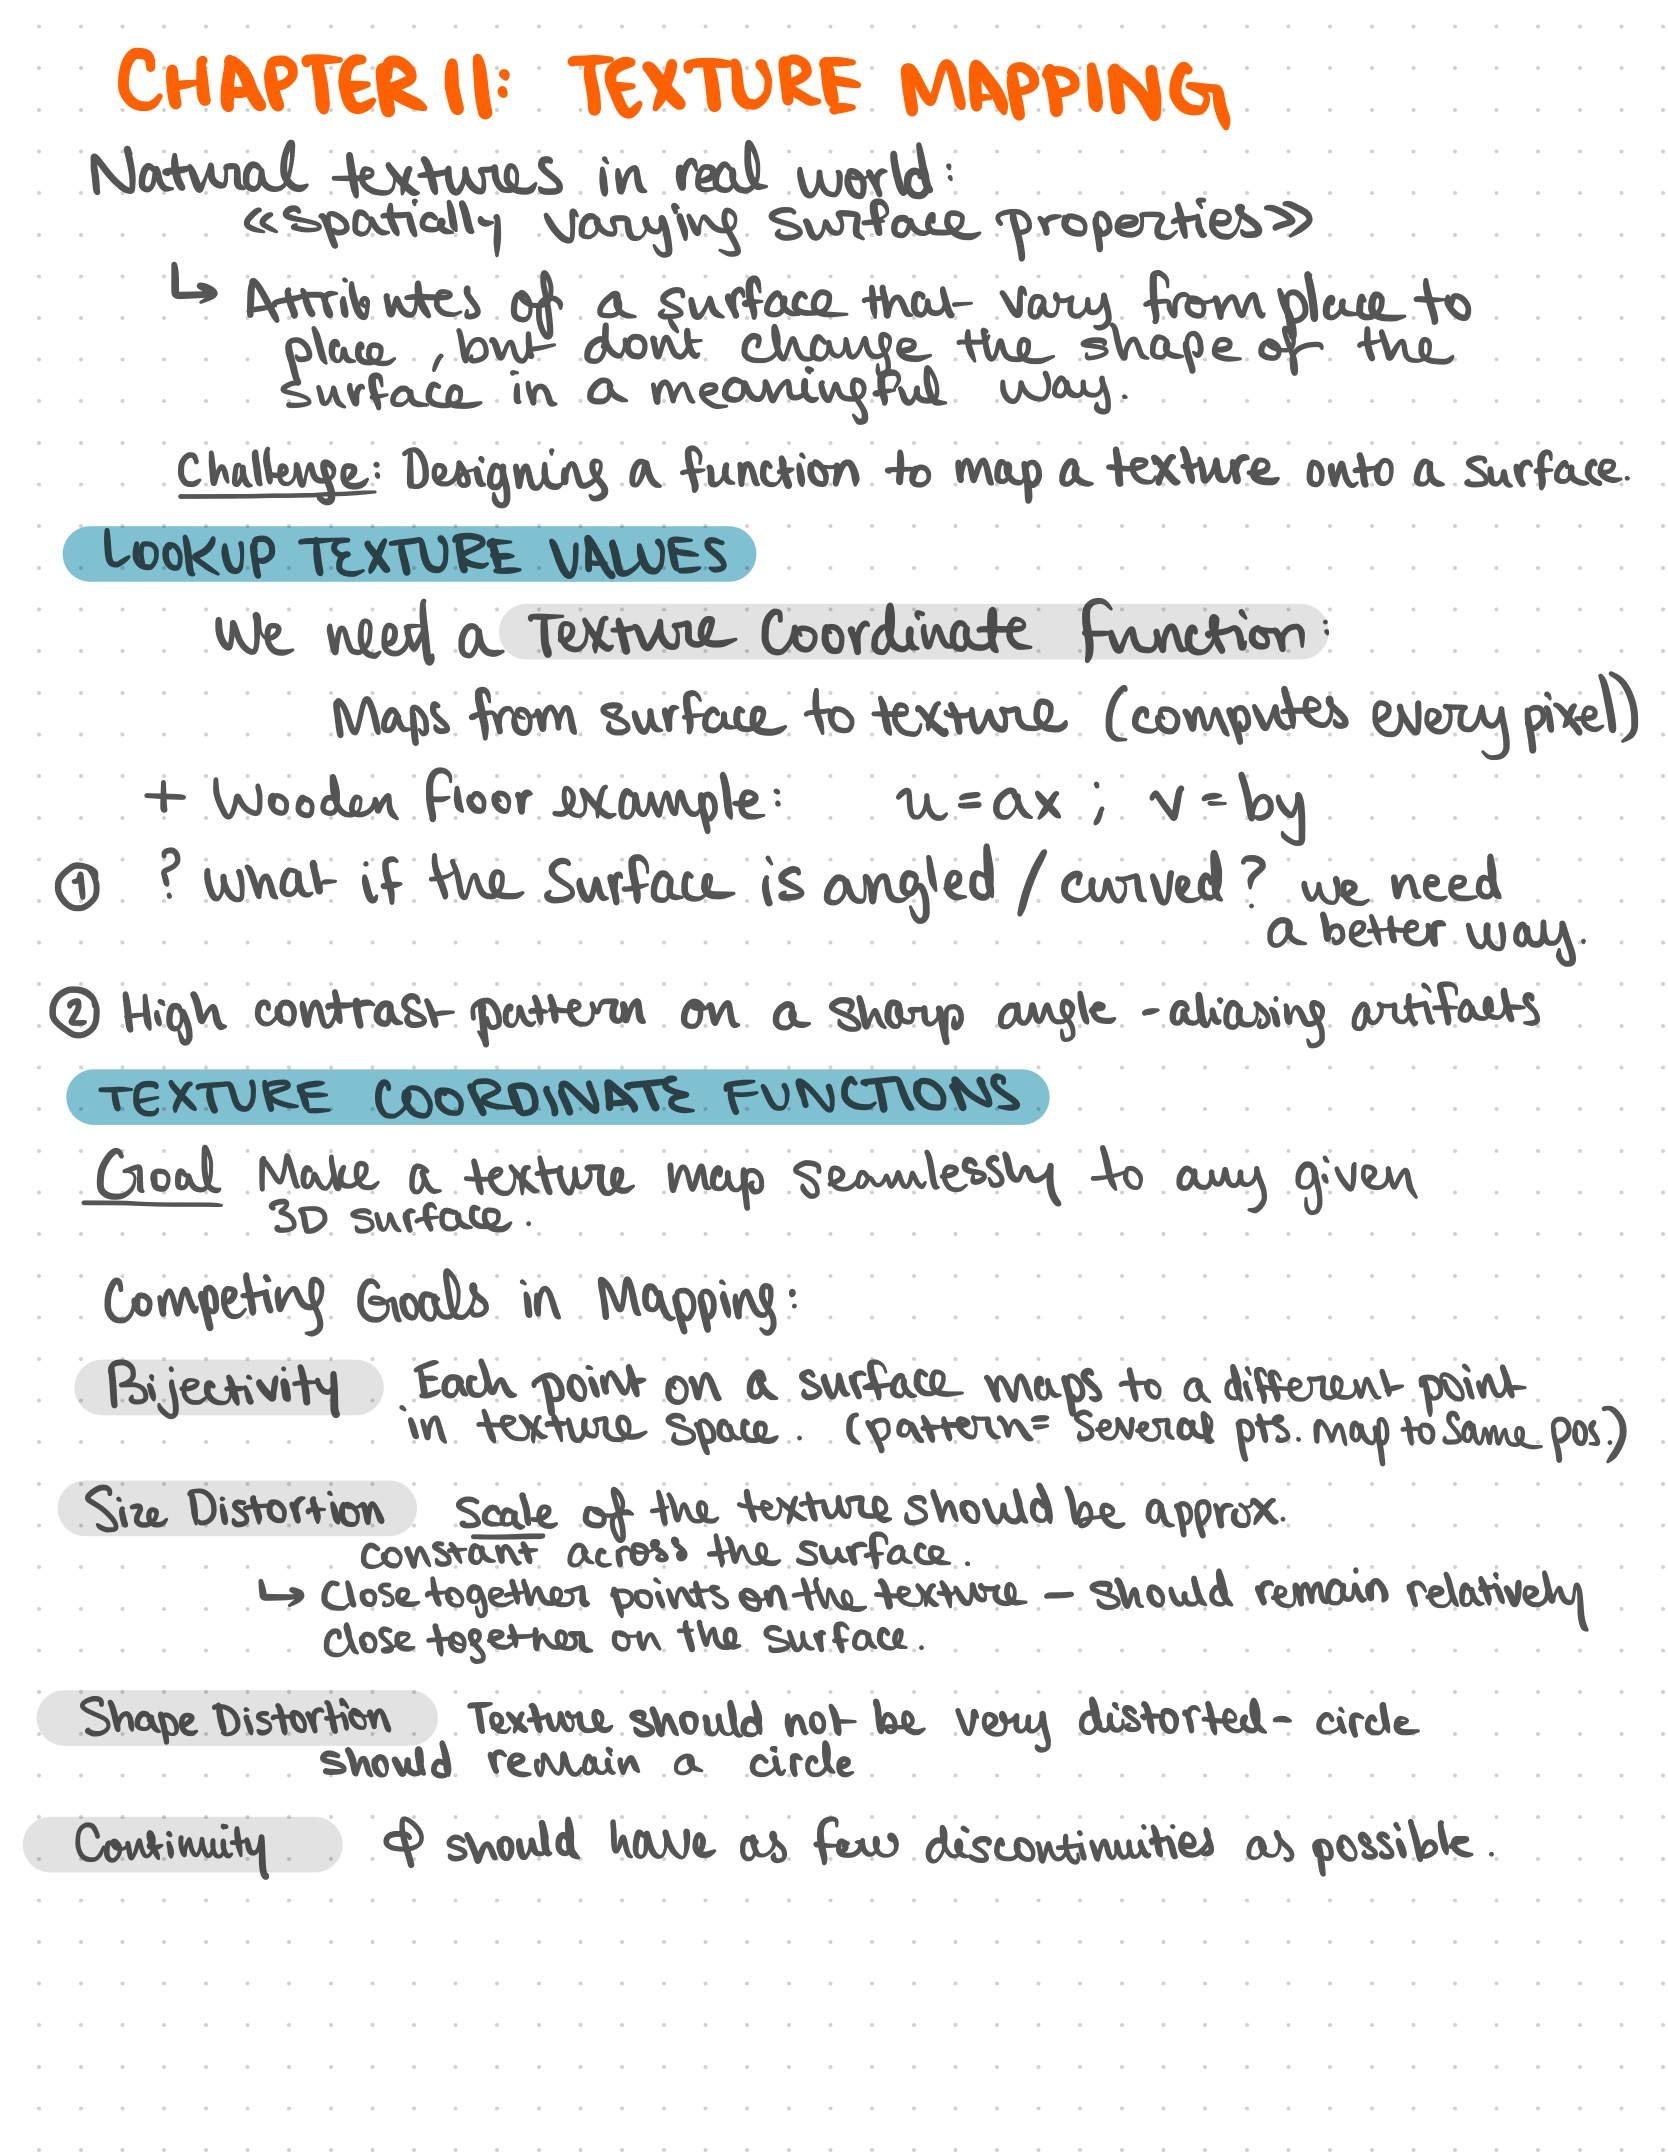 CHAPTER 11: TEXTURE MAPPING
Natural textures in real world:
«Spatially varying surface properties»
↳ Attributes of a surface that vary from place to
place, but dont change the shape of the
surface in a meaningful way.
Challenge: Designing a function to map a texture onto a surface.
LOOKUP TEXTURE VALUES
We need a Texture Coordinate function:
Maps from surface to texture (computes every pixel)
+ Wooden floor example: u = ax ; v = by
① ? what if the Surface is angled / curved? we need
a better way.
② High contrast pattern on a sharp angle - aliasing artifacts
TEXTURE COORDINATE FUNCTIONS
Goal Make a texture map seamlessly to any given
3D surface.
Competing Goals in Mapping:
Bijectivity Each point on a surface maps to a different point
in texture space. (pattern = several pts. map to same pos.)
Size Distortion Scale of the texture should be approx.
constant across the surface.
↳ Close together points on the texture - should remain relatively
close together on the surface.
Shape Distortion Texture should not be very distorted - circle
should remain a circle
Continuity ϕ should have as few discontinuities as possible.